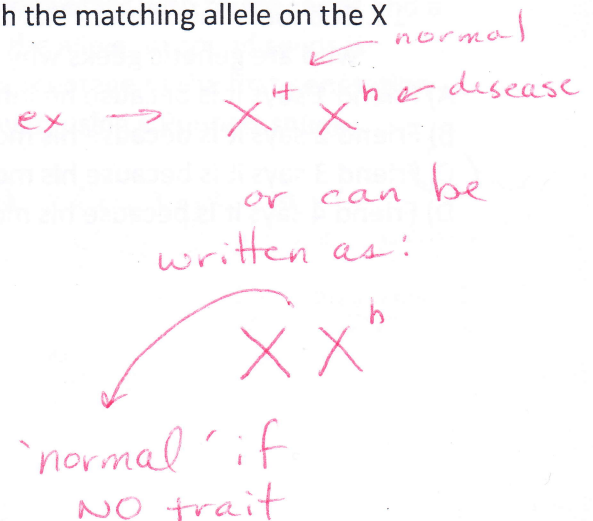 h the matching allele on the X
normal
ex → X^H X^h ← disease
or can be
written as:
X X^h
'normal' if
NO trait